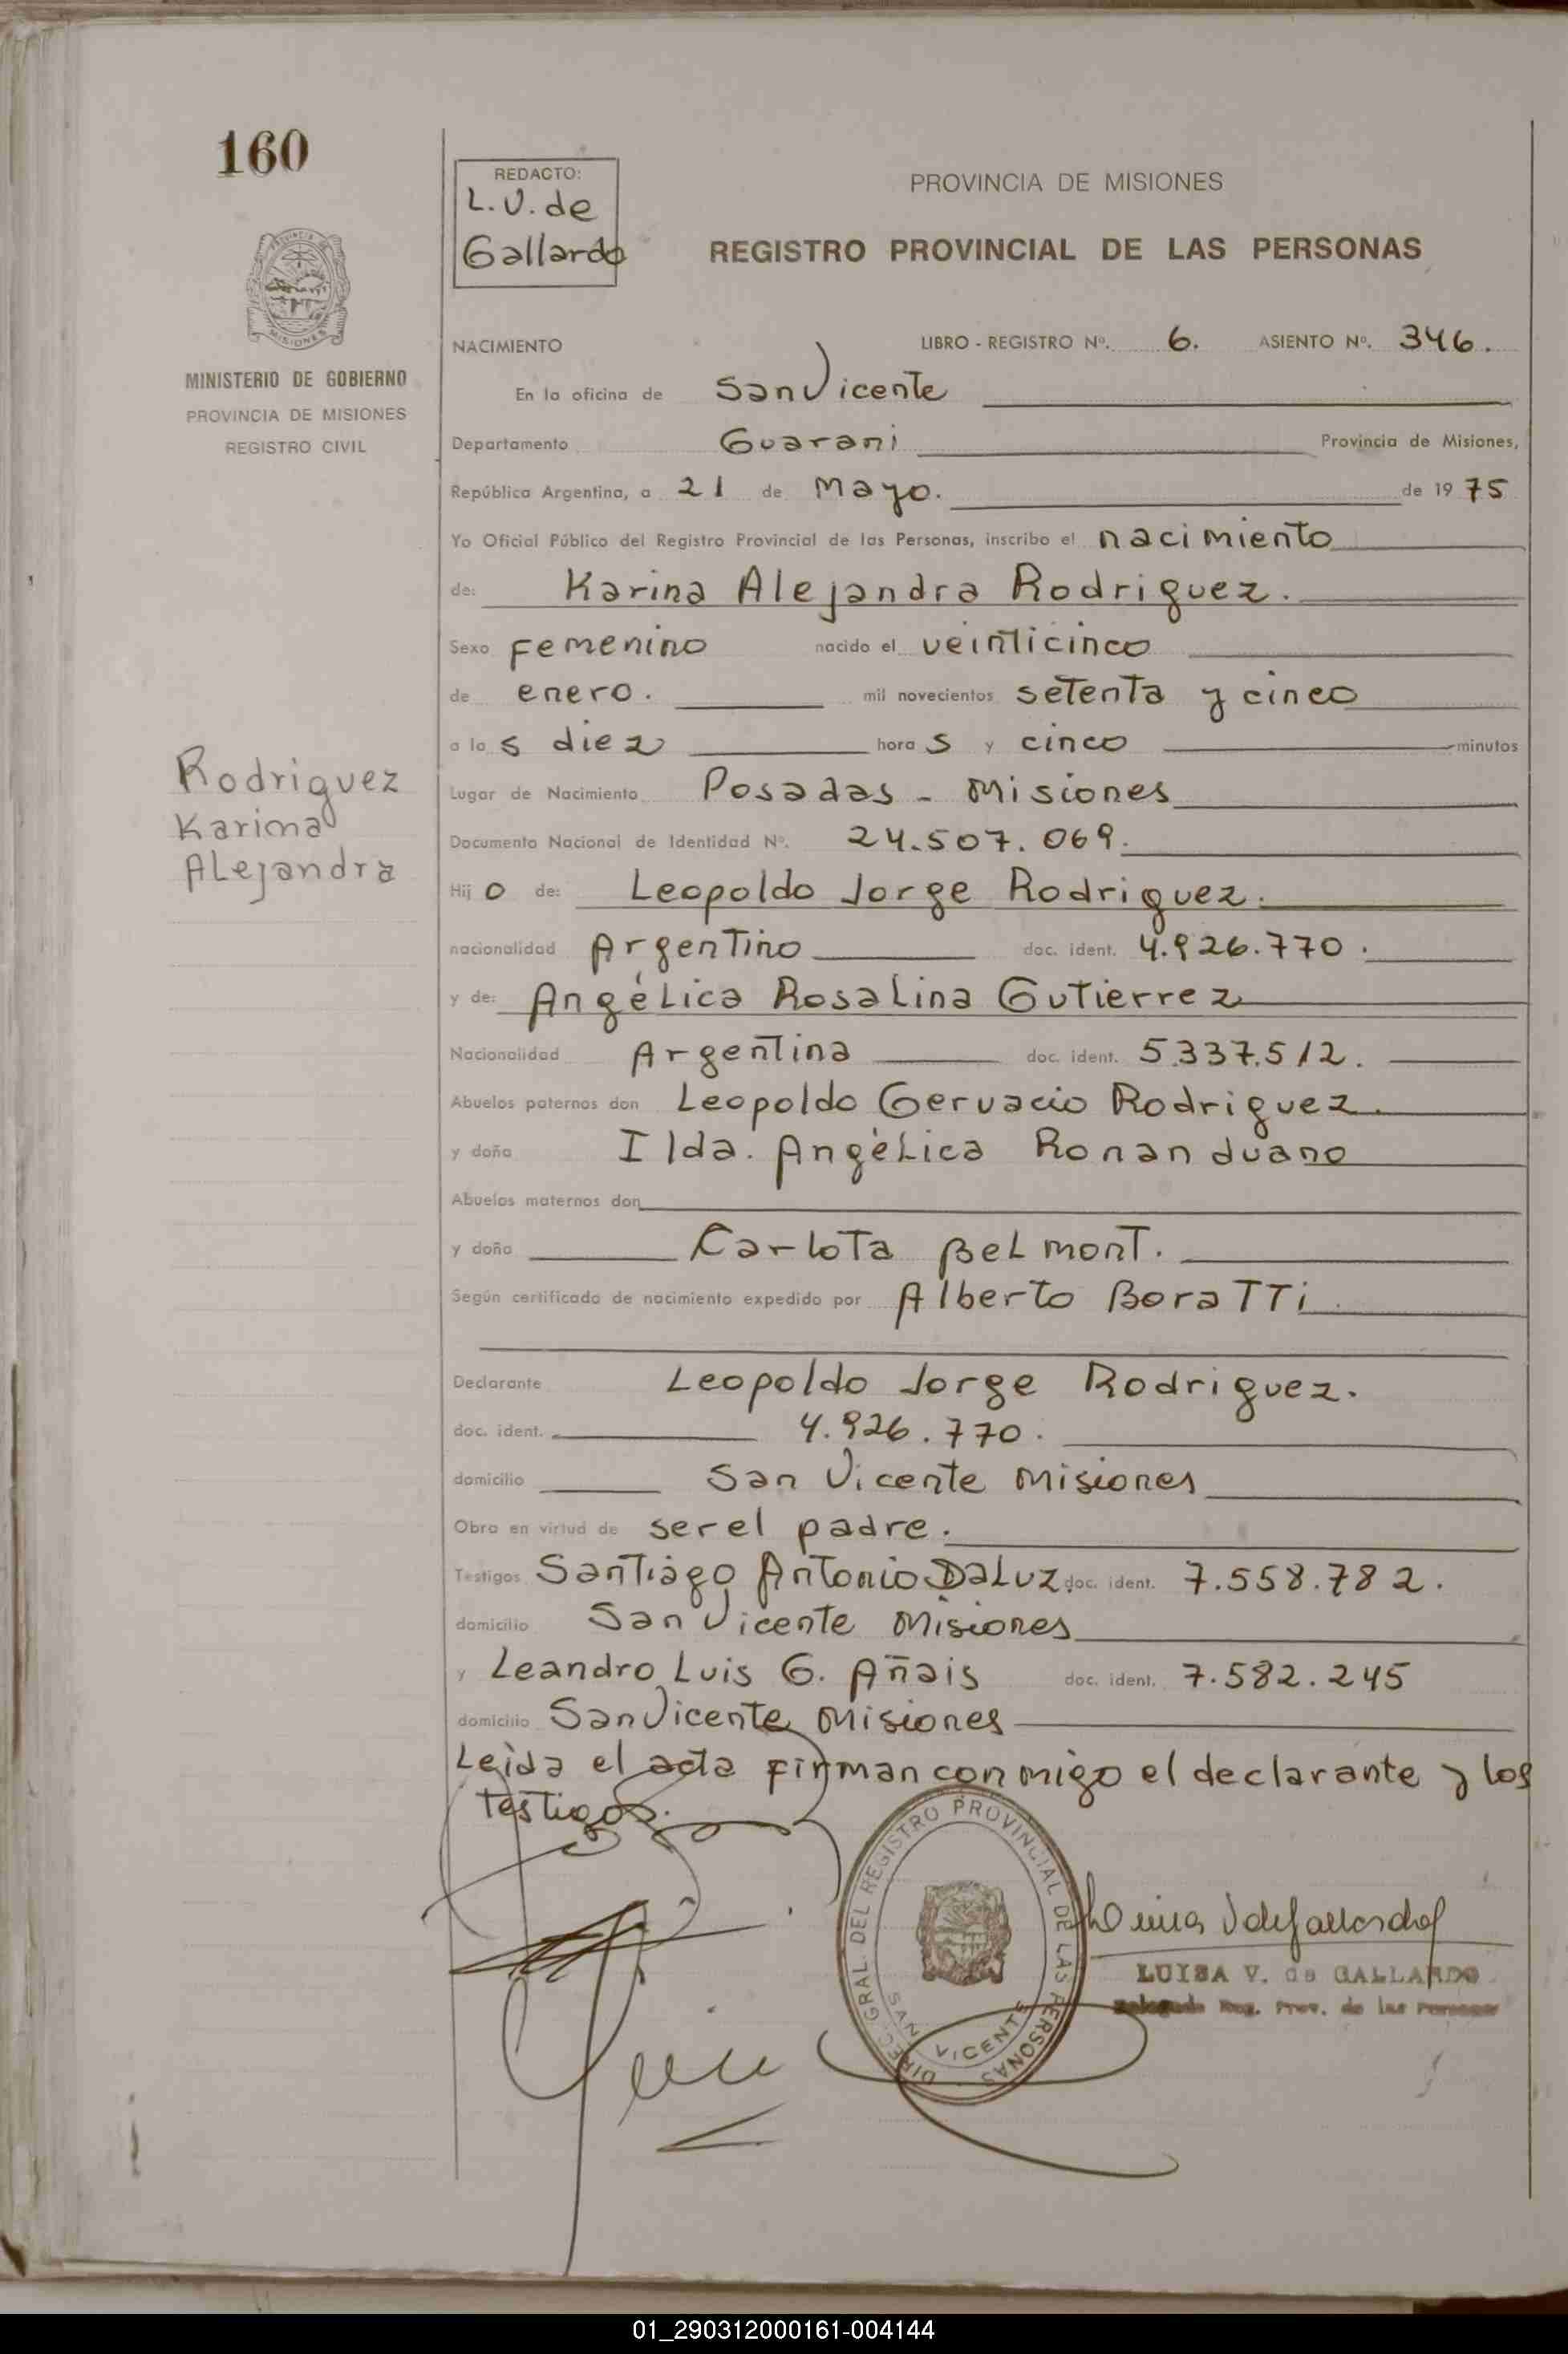 160
REDACTO:
L.V. de
Gallardo
PROVINCIA DE MISIONES
REGISTRO PROVINCIAL DE LAS PERSONAS
MISIONES
MINISTERIO DE GOBIERNO
PROVINCIA DE MISIONES
REGISTRO CIVIL
NACIMIENTO LIBRO - REGISTRO Nº. 6. ASIENTO Nº. 346.
En la oficina de San Vicente
Departamento Guarani Provincia de Misiones,
República Argentina, a 21 de Mayo. de 19 75
Yo Oficial Público del Registro Provincial de las Personas, inscribo el nacimiento
de: Karina Alejandra Rodriguez.
Sexo Femenino nacido el veinticinco
de enero. mil novecientos setenta y cinco
a las diez horas y cinco minutos
Rodriguez
Karina
Alejandra
Lugar de Nacimiento Posadas - Misiones
Documento Nacional de Identidad Nº. 24.507.069.
Hijo de: Leopoldo Jorge Rodriguez.
nacionalidad Argentino doc. ident. 4.926.770.
y de: Angélica Rosalina Gutierrez
Nacionalidad Argentina doc. ident. 5.337.512.
Abuelos paternos don Leopoldo Gervacio Rodriguez.
y doña Ilda. Angélica Ronanduano
Abuelos maternos don
y doña Carlota Belmont.
Según certificado de nacimiento expedido por Alberto Boratti.
Declarante Leopoldo Jorge Rodriguez.
doc. ident. 4.926.770.
domicilio San Vicente Misiones
Obra en virtud de ser el padre.
Testigos Santiago Antonio DaLuz. doc. ident. 7.558.782.
domicilio San Vicente Misiones
y Leandro Luis G. Añais doc. ident. 7.582.245
domicilio San Vicente Misiones
Leida el acta firman conmigo el declarante y los
testigos.
DIREC. GRAL. DEL REGISTRO PROVINCIAL DE LAS PERSONAS
SAN VICENTE
Luisa V de Gallardo
LUISA V. de GALLARDO
Delegada Reg. Prov. de las Personas
01_290312000161-004144